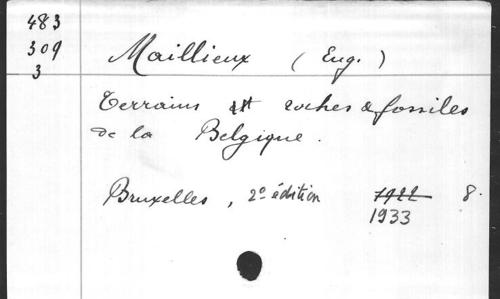 483
309
3
Maillieux (Eug.)
Terrains roches & fossiles
de la Belgique.
Bruxelles, 2º édition 1922 8.
1933